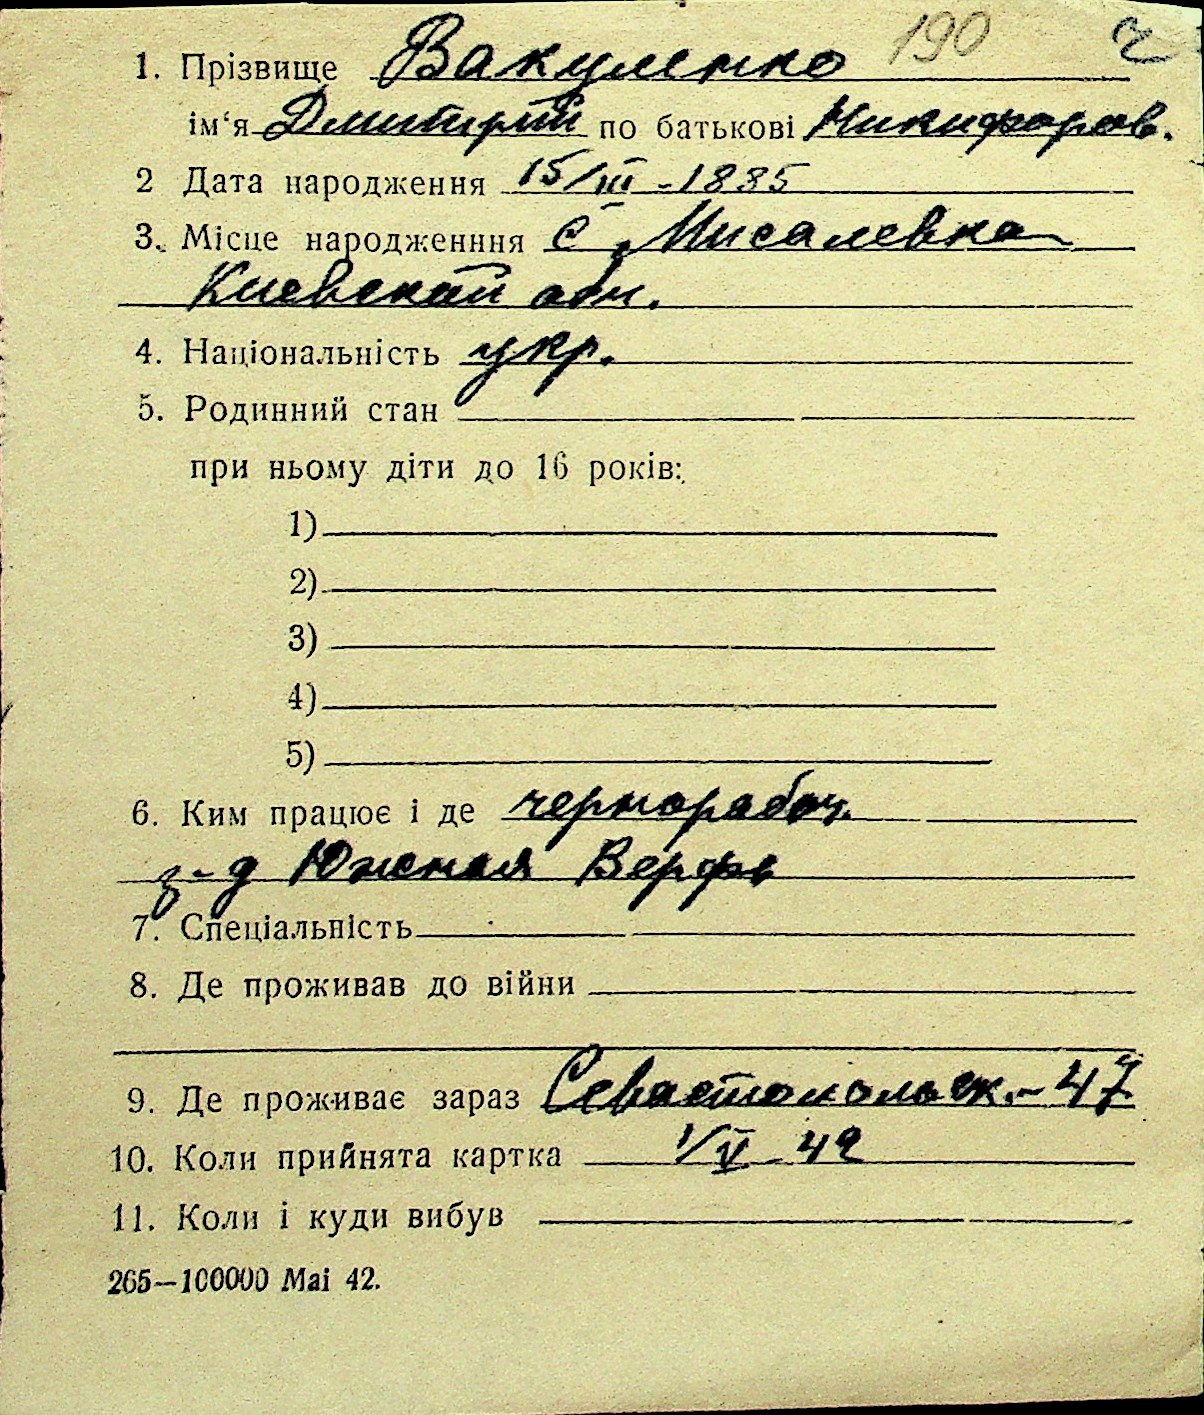 190 ч
1. Прізвище Вакуленко
ім‘я Дмитрий по батькові Никифоров.
2 Дата народження 15/III - 1885
3. Місце народженння с. Мисалевка
Киевской обл.
4. Національність укр.
5. Родинний стан
при ньому діти до 16 років:
1)
2)
3)
4)
5)
6. Ким працює і де чернорабоч.
з-д Южная Верфь
7. Спеціальність
8. Де проживав до війни
9. Де проживає зараз Севастопольск. - 47
10. Коли прийнята картка 1/V - 42
11. Коли і куди вибув
265—100000 Mai 42.